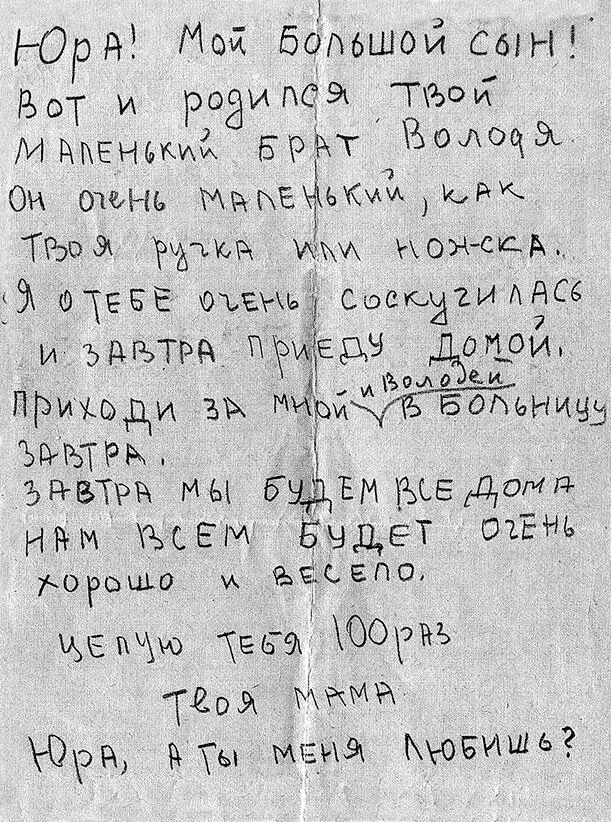 Юра! Мой большой сын!
Вот и родился твой
маленький брат Володя
Он очень маленький, как
твоя ручка или ножка.
Я о тебе очень соскучилась
и завтра приеду домой.
и Володей
Приходи за мной в больницу
завтра.
Завтра мы будем все дома
нам всем будет очень
хорошо и весело.
Целую тебя 100 раз
твоя мама
Юра, а ты меня любишь?